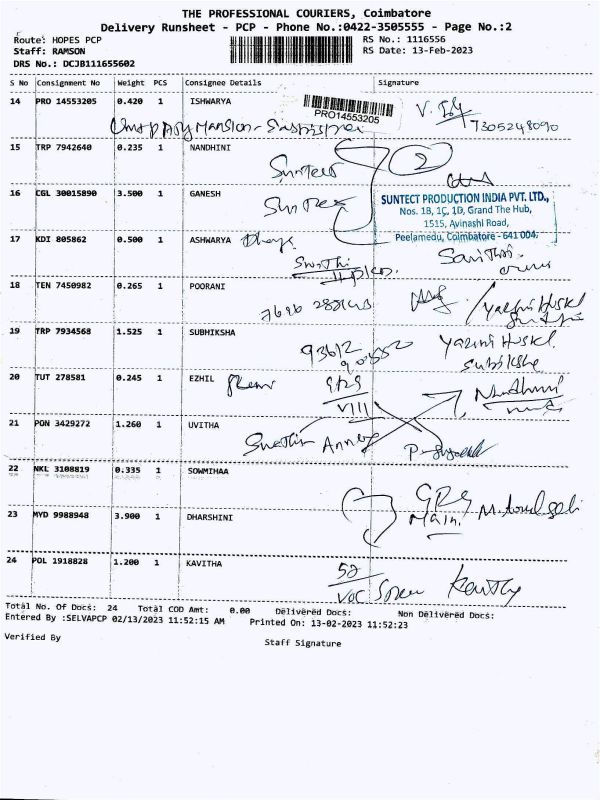 THE PROFESSIONAL COURIERS, Coimbatore
Delivery Runsheet - PCP - Phone No.:0422-3505555 - Page No.:2
Route: HOPES PCP RS No.: 1116556
Staff: RAMSON RS Date: 13-Feb-2023
DRS No.: DCJB111655602
S No Consignment No Weight PCS Consignee Details Signature
14 PRO 14553205 0.420 1 ISHWARYA
PRO14553205
7305248090
15 TRP 7942640 0.235 1 NANDHINI
Suntech 2
16 CGL 30015890 3.500 1 GANESH
SUNTECT PRODUCTION INDIA PVT. LTD.,
Nos. 1B, 1C, 1D, Grand The Hub,
1515, Avinashi Road,
Peelamedu, Coimbatore - 641 004.
17 KDI 805862 0.500 1 ASHWARYA
Swathi
18 TEN 7450982 0.265 1 POORANI
19 TRP 7934568 1.525 1 SUBHIKSHA
20 TUT 278581 0.245 1 EZHIL
GRG
VIII
21 PON 3429272 1.260 1 UVITHA
22 NKL 3108819 0.335 1 SOWMIHAA
GRG
Main
23 MYD 9988948 3.900 1 DHARSHINI
24 POL 1918828 1.200 1 KAVITHA
52
VOC
Total No. Of Docs: 24 Total COD Amt: 0.00 Delivered Docs: Non Delivered Docs:
Entered By :SELVAPCP 02/13/2023 11:52:15 AM Printed On: 13-02-2023 11:52:23
Verified By Staff Signature